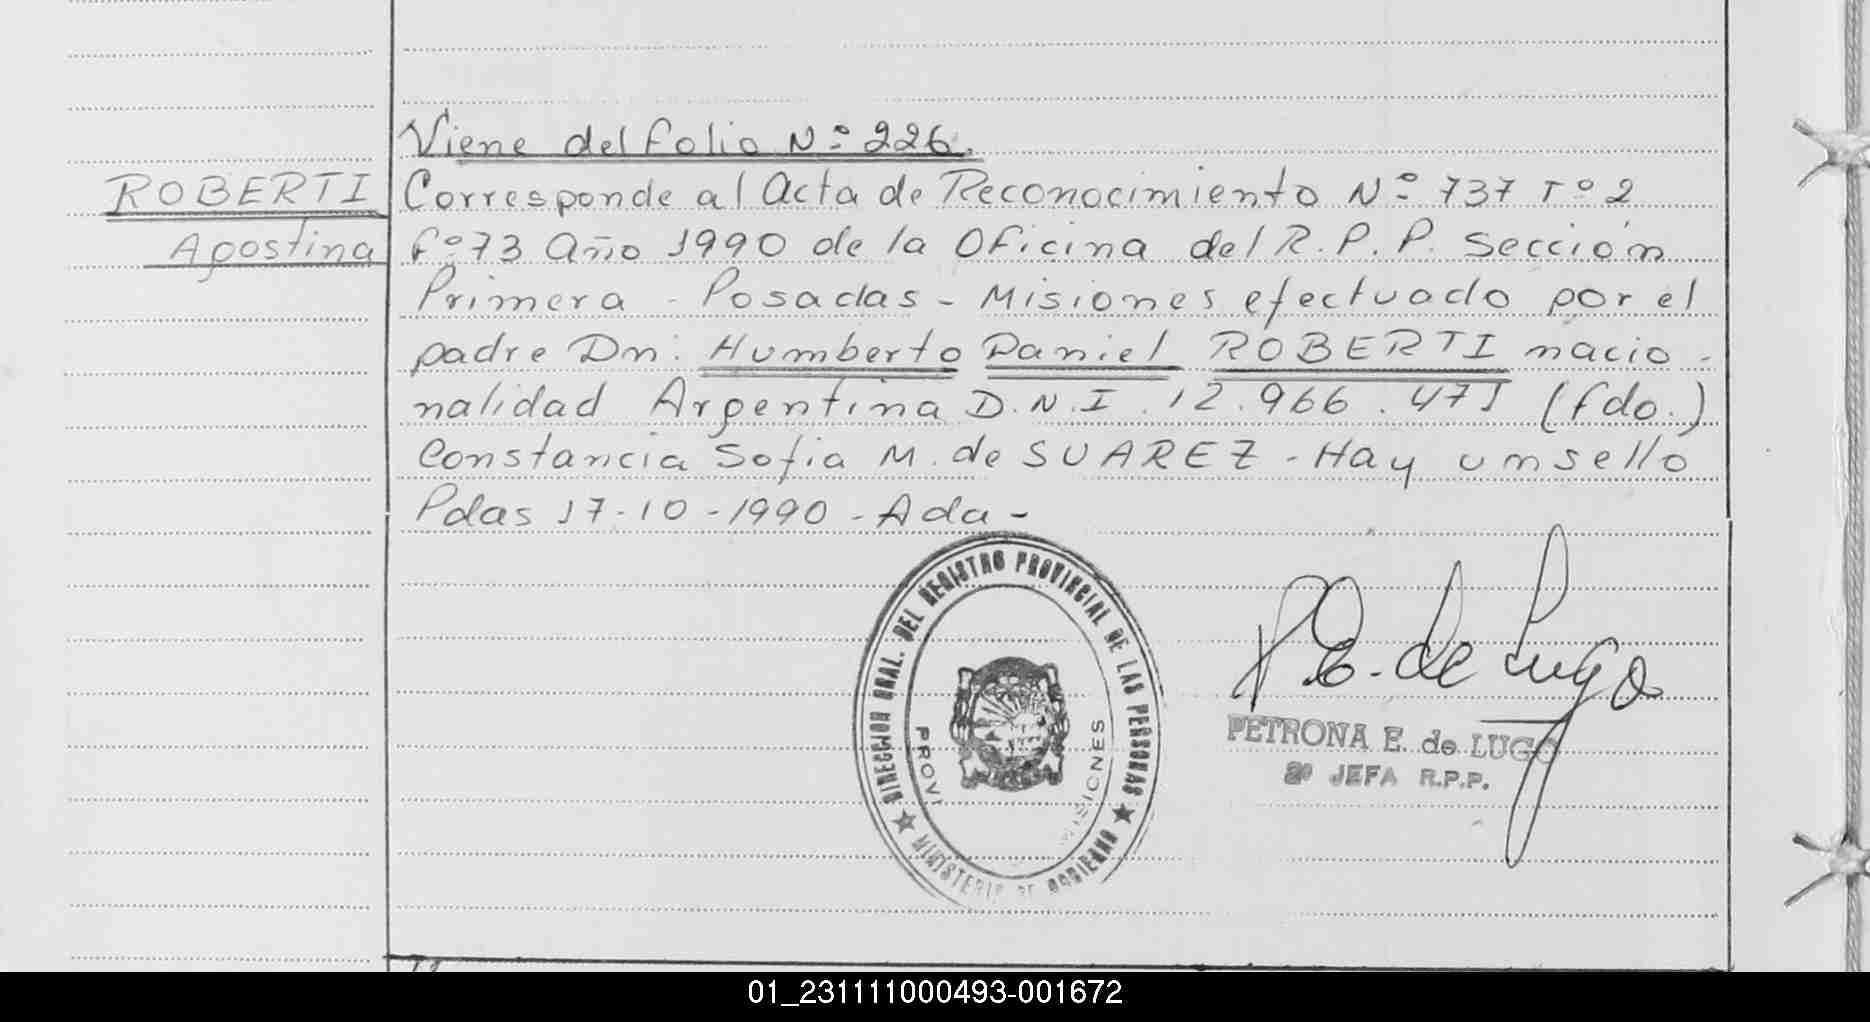 Viene del folio Nº 226.
ROBERTI
Agostina
Corresponde al Acta de Reconocimiento Nº 737 Tº 2
fº 73 Año 1990 de la Oficina del R.P.P. sección
Primera - Posadas - Misiones efectuado por el
padre Dn: Humberto Daniel ROBERTI nacio-
nalidad Argentina D.N.I. 12.966.471 (fdo.)
Constancia Sofia M. de SUAREZ - Hay un sello
Pdas 17-10-1990 - Ada -
DIRECCION GRAL. DEL REGISTRO PROVINCIAL DE LAS PERSONAS
MINISTERIO DE GOBIERNO
MISIONES
P.E. de Lugo
PETRONA E. de LUGO
2º JEFA R.P.P.
01_231111000493-001672